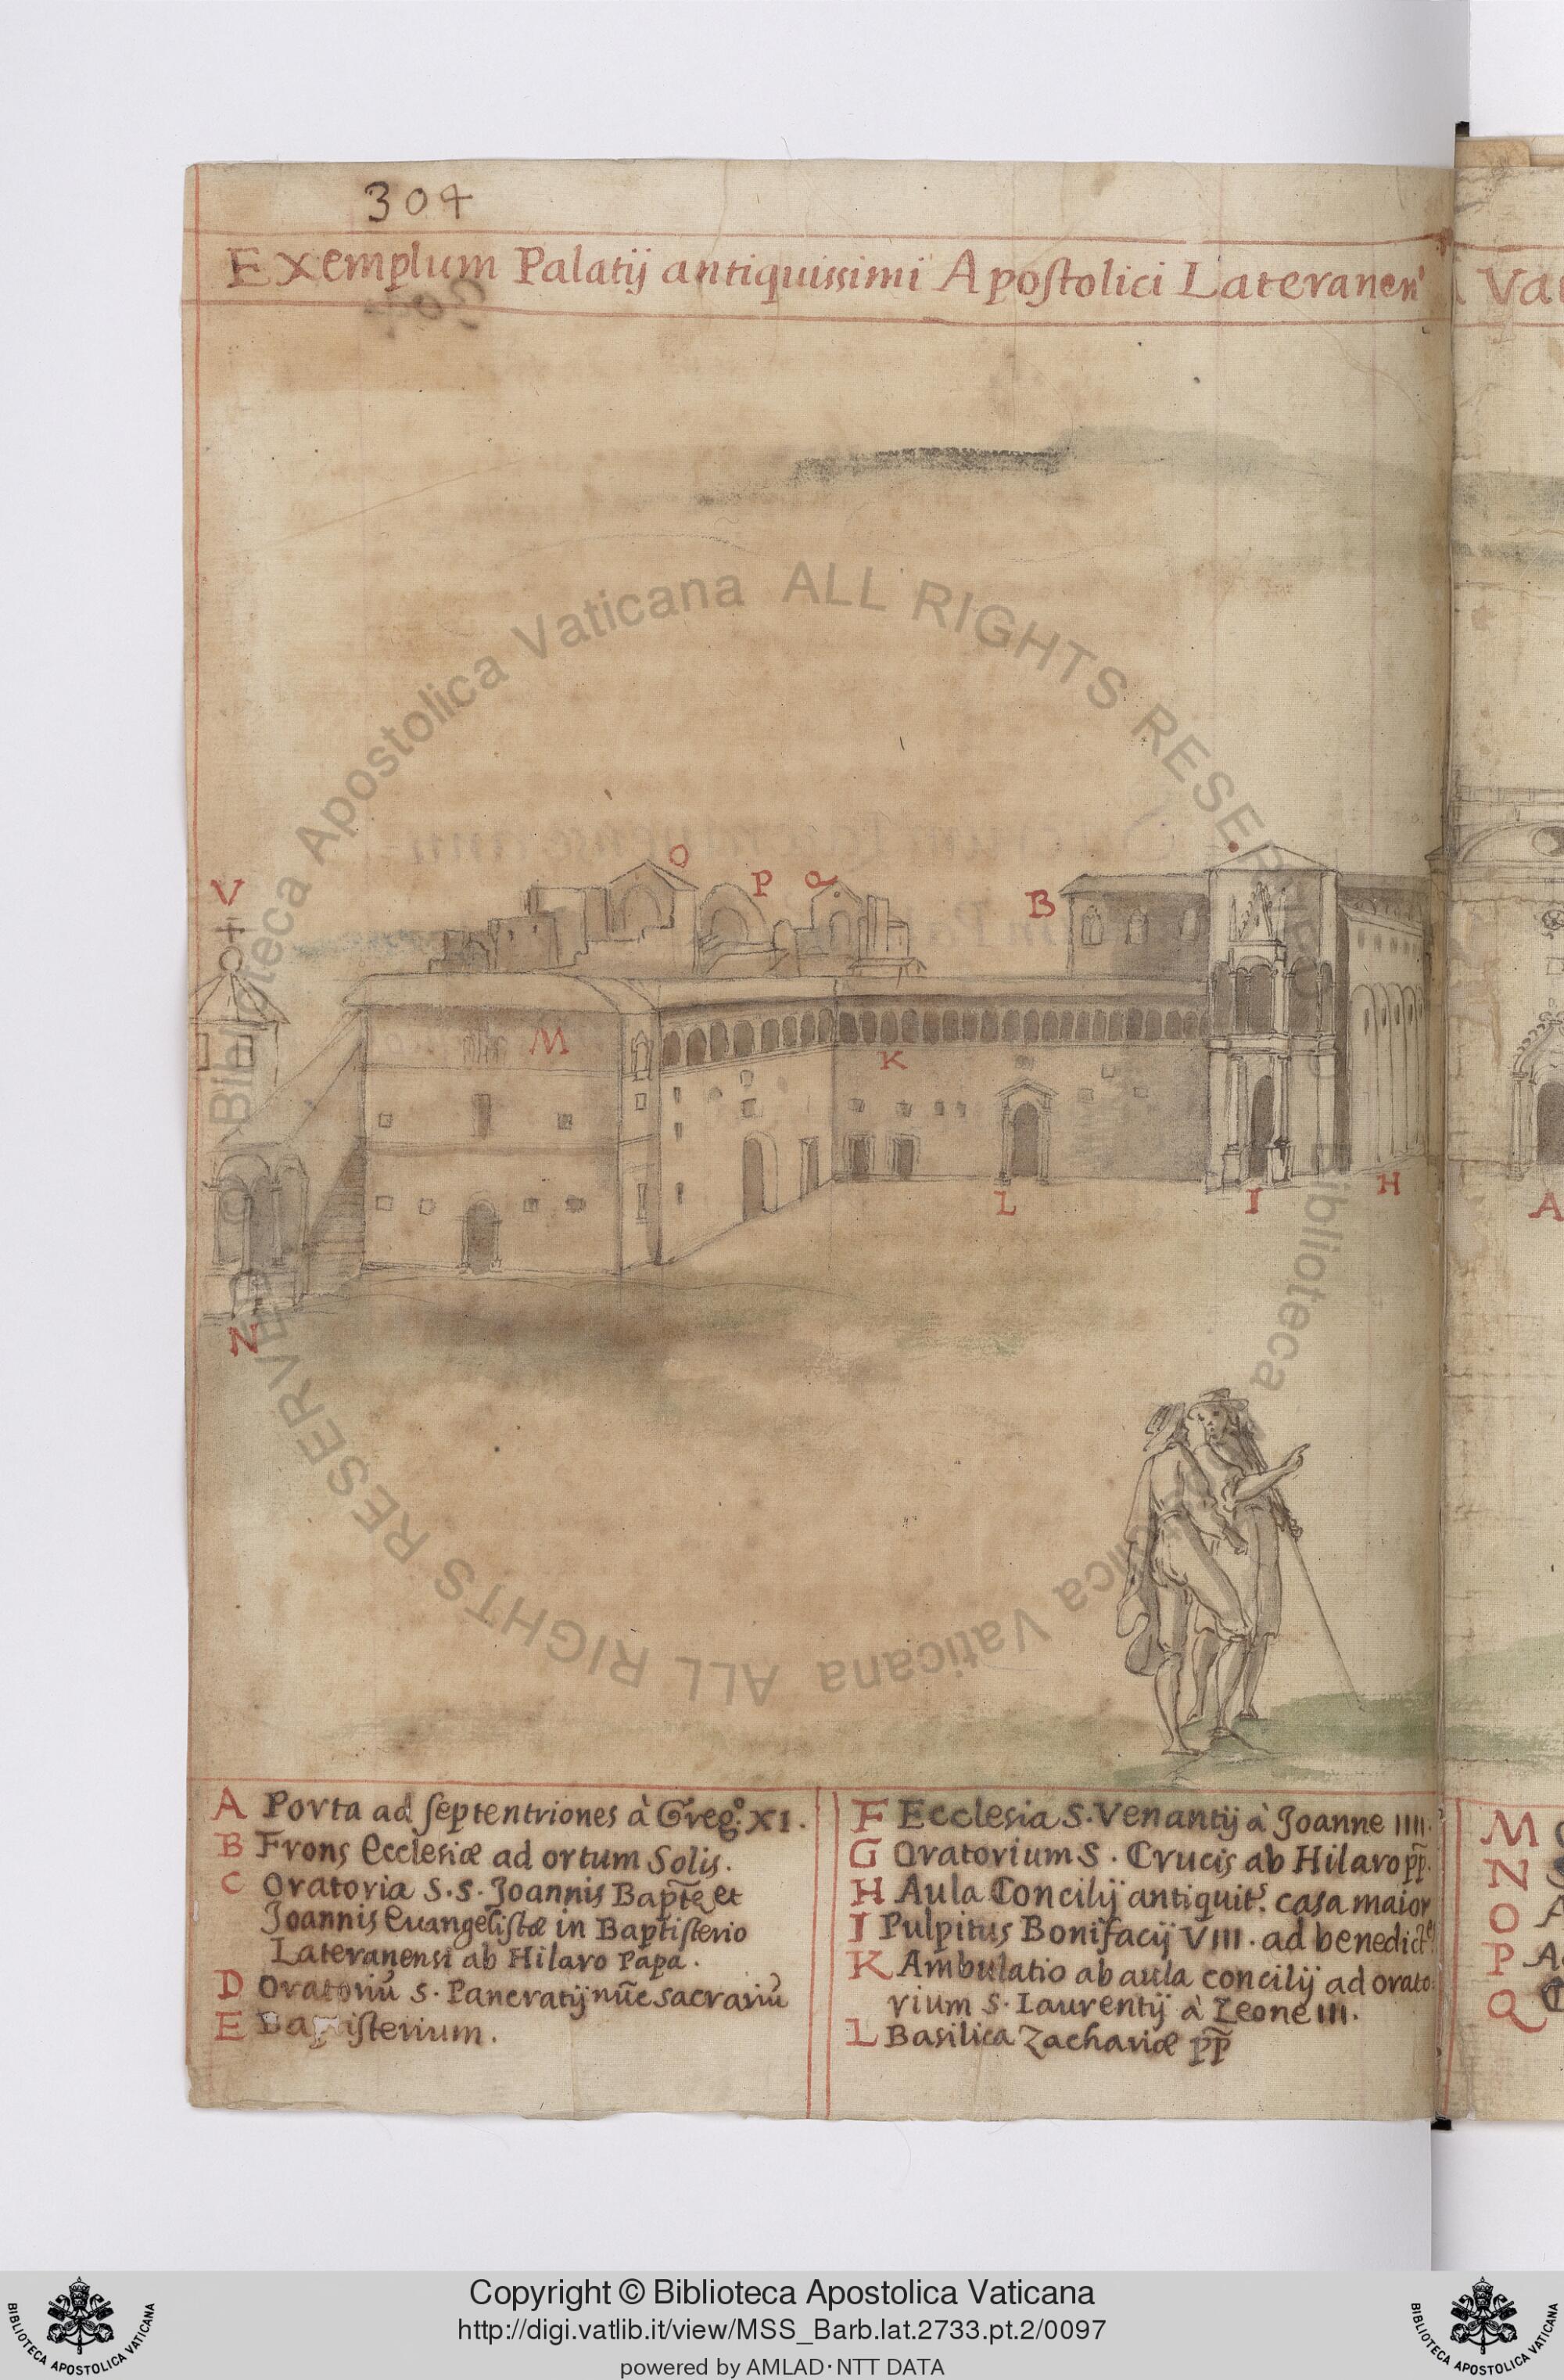 304
Exemplum Palatij antiquissimi Apostolici Lateranen'
Va
V
O
P
Q
B
M
K
L
I
H
A
N
A Porta ad septentriones à Greg.º XI.
B Frons Ecclesiæ ad ortum Solis.
C Oratoria S.S. Joannis Bapt̃e et
Joannis Euangelistæ in Baptisterio
Lateranensi ab Hilaro Papa.
D Oratoriũ S. Pancratij nũc sacrariũ
E Baptisterium.
F Ecclesia S. Venantij à Joanne IIII.
G Oratorium S. Crucis ab Hilaro pp̃.
H Aula Concilij antiquitˢ. casa maior
I Pulpitus Bonifacij VIII. ad benedict
K Ambulatio ab aula concilij ad orato
rium S. Laurentij à Leone III.
L Basilica Zachariæ pp̃
M
N
O
P
Q
© Biblioteca Apostolica Vaticana ALL RIGHTS RESERVED
© Biblioteca Apostolica Vaticana ALL RIGHTS RESERVED
Copyright © Biblioteca Apostolica Vaticana
http://digi.vatlib.it/view/MSS_Barb.lat.2733.pt.2/0097
powered by AMLAD·NTT DATA
BIBLIOTECA APOSTOLICA VATICANA
BIBLIOTECA APOSTOLICA VATICANA